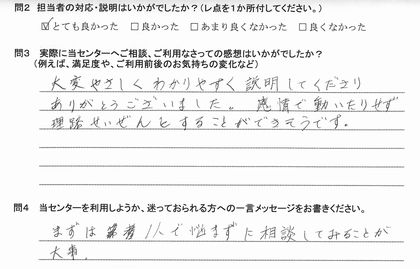 問2 担当者の対応・説明はいかがでしたか?(レ点を1か所付してください。)
☑とても良かった □良かった □あまり良くなかった □良くなかった
問3 実際に当センターへご相談、ご利用なさっての感想はいかがでしたか?
(例えば、満足度や、ご利用前後のお気持ちの変化など)
大変やさしく わかりやすく 説明してくださり
ありがとうございました。 感情で動いたりせず
理路せいぜんとすることができそうです。
問4 当センターを利用しようか、迷っておられる方への一言メッセージをお書きください。
まずは 1人で悩まずに相談してみることが
大事。